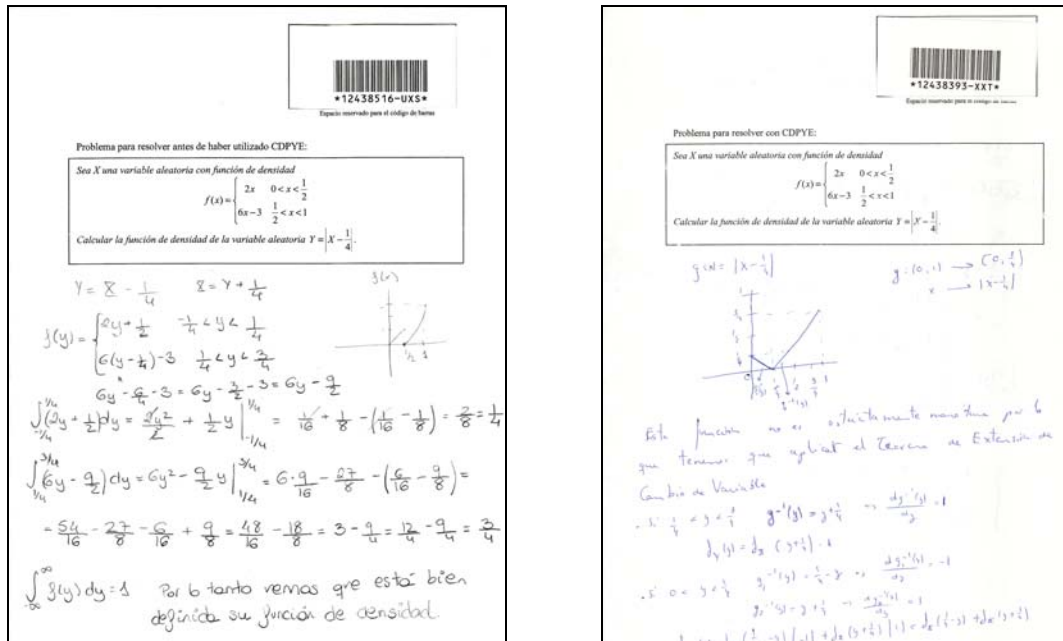 *12438516-UXS*
Espacio reservado para el código de barras
Problema para resolver antes de haber utilizado CDPYE:
Sea X una variable aleatoria con función de densidad
f(x)={ 2x 0<x<1/2
6x-3 1/2<x<1
Calcular la función de densidad de la variable aleatoria Y=|X-1/4|.
Y = X - 1/4 X = Y + 1/4
f(x)
1/2 1
f(y) = { 2y+1/2 -1/4 < y < 1/4
6(y-1/4)-3 1/4 < y < 3/4
6y - 6/4 - 3 = 6y - 3/2 - 3 = 6y - 9/2
∫_{-1/4}^{1/4} (2y + 1/2) dy = 2y²/2 + 1/2 y |_{-1/4}^{1/4} = 1/16 + 1/8 - (1/16 - 1/8) = 2/8 = 1/4
∫_{1/4}^{3/4} (6y - 9/2) dy = 6y² - 9/2 y |_{1/4}^{3/4} = 6·9/16 - 27/8 - (6/16 - 9/8) =
= 54/16 - 27/8 - 6/16 + 9/8 = 48/16 - 18/8 = 3 - 9/4 = 12/4 - 9/4 = 3/4
∫_{-∞}^{∞} f(y) dy = 1 Por lo tanto vemos que está bien
definida su función de densidad.
*12438393-XXT*
Espacio reservado para el código de barras
Problema para resolver con CDPYE:
Sea X una variable aleatoria con función de densidad
f(x)={ 2x 0<x<1/2
6x-3 1/2<x<1
Calcular la función de densidad de la variable aleatoria Y=|X-1/4|.
g(x) = |x-1/4| g: (0,1) → (0,3/4)
x → |x-1/4|
g⁻¹(y)
Esta función no es estrictamente monótona por lo
que tenemos que aplicar el Teorema de Extensión de
Cambio de Variable
. Si 1/4 < y < 3/4 g⁻¹(y) = y+1/4 → dg⁻¹(y)/dy = 1
f_Y(y) = f_X(y+1/4)·1
. Si 0 < y < 1/4 g₁⁻¹(y) = 1/4-y → dg₁⁻¹(y)/dy = -1
g₂⁻¹(y) = y+1/4 → dg₂⁻¹(y)/dy = 1
(1/4-y) |-1| + f_X(y+1/4) |1| = f_X(1/4-y) + f_X(y+1/4)